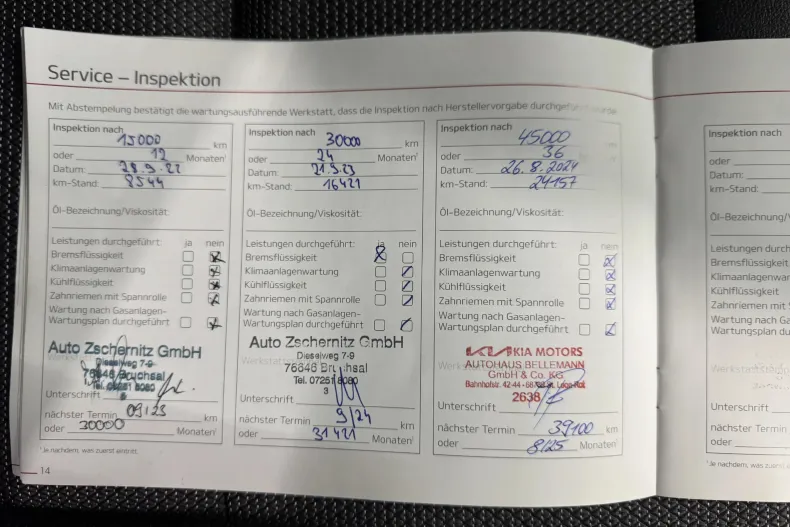 Service – Inspektion
Mit Abstempelung bestätigt die wartungsausführende Werkstatt, dass die Inspektion nach Herstellervorgabe durchgeführt wurde
Inspektion nach
15000 km
oder 12 Monaten¹
Datum: 28.9.22
km-Stand: 8544
Öl-Bezeichnung/Viskosität:
Leistungen durchgeführt: ja nein
Bremsflüssigkeit
Klimaanlagenwartung
Kühlflüssigkeit
Zahnriemen mit Spannrolle
Wartung nach Gasanlagen-
Wartungsplan durchgeführt
Auto Zschernitz GmbH
Dieselweg 7-9
76646 Bruchsal
Tel. 07251 8080
Unterschrift
nächster Termin 09/23 km
oder 30000 Monaten¹
¹Je nachdem, was zuerst eintritt.
14
Inspektion nach
30000 km
oder 24 Monaten¹
Datum: 21.9.23
km-Stand: 16421
Öl-Bezeichnung/Viskosität:
Leistungen durchgeführt: ja nein
Bremsflüssigkeit
Klimaanlagenwartung
Kühlflüssigkeit
Zahnriemen mit Spannrolle
Wartung nach Gasanlagen-
Wartungsplan durchgeführt
Auto Zschernitz GmbH
Dieselweg 7-9
76646 Bruchsal
Tel. 07251 8080
3
Unterschrift
nächster Termin 9/24 km
oder 31421 Monaten¹
Inspektion nach
45000 km
oder 36 Monaten¹
Datum: 26.8.2024
km-Stand: 24157
Öl-Bezeichnung/Viskosität:
Leistungen durchgeführt: ja nein
Bremsflüssigkeit
Klimaanlagenwartung
Kühlflüssigkeit
Zahnriemen mit Spannrolle
Wartung nach Gasanlagen-
Wartungsplan durchgeführt
KIA KIA MOTORS
AUTOHAUS BELLEMANN
GmbH & Co. KG
Bahnhofstr. 42-44
2638
Unterschrift
nächster Termin 39100 km
oder 8/25 Monaten¹
Inspektion nach
oder
Datum:
km-Stand:
Öl-Bezeichnung/Viskosi
Leistungen durchgeführt
Bremsflüssigkeit
Klimaanlagenwar
Kühlflüssigkeit
Zahnriemen mit S
Wartung nach Ga
Wartungsplan du
Unterschrift
nächster Termin
oder
¹Je nachdem, was zuerst